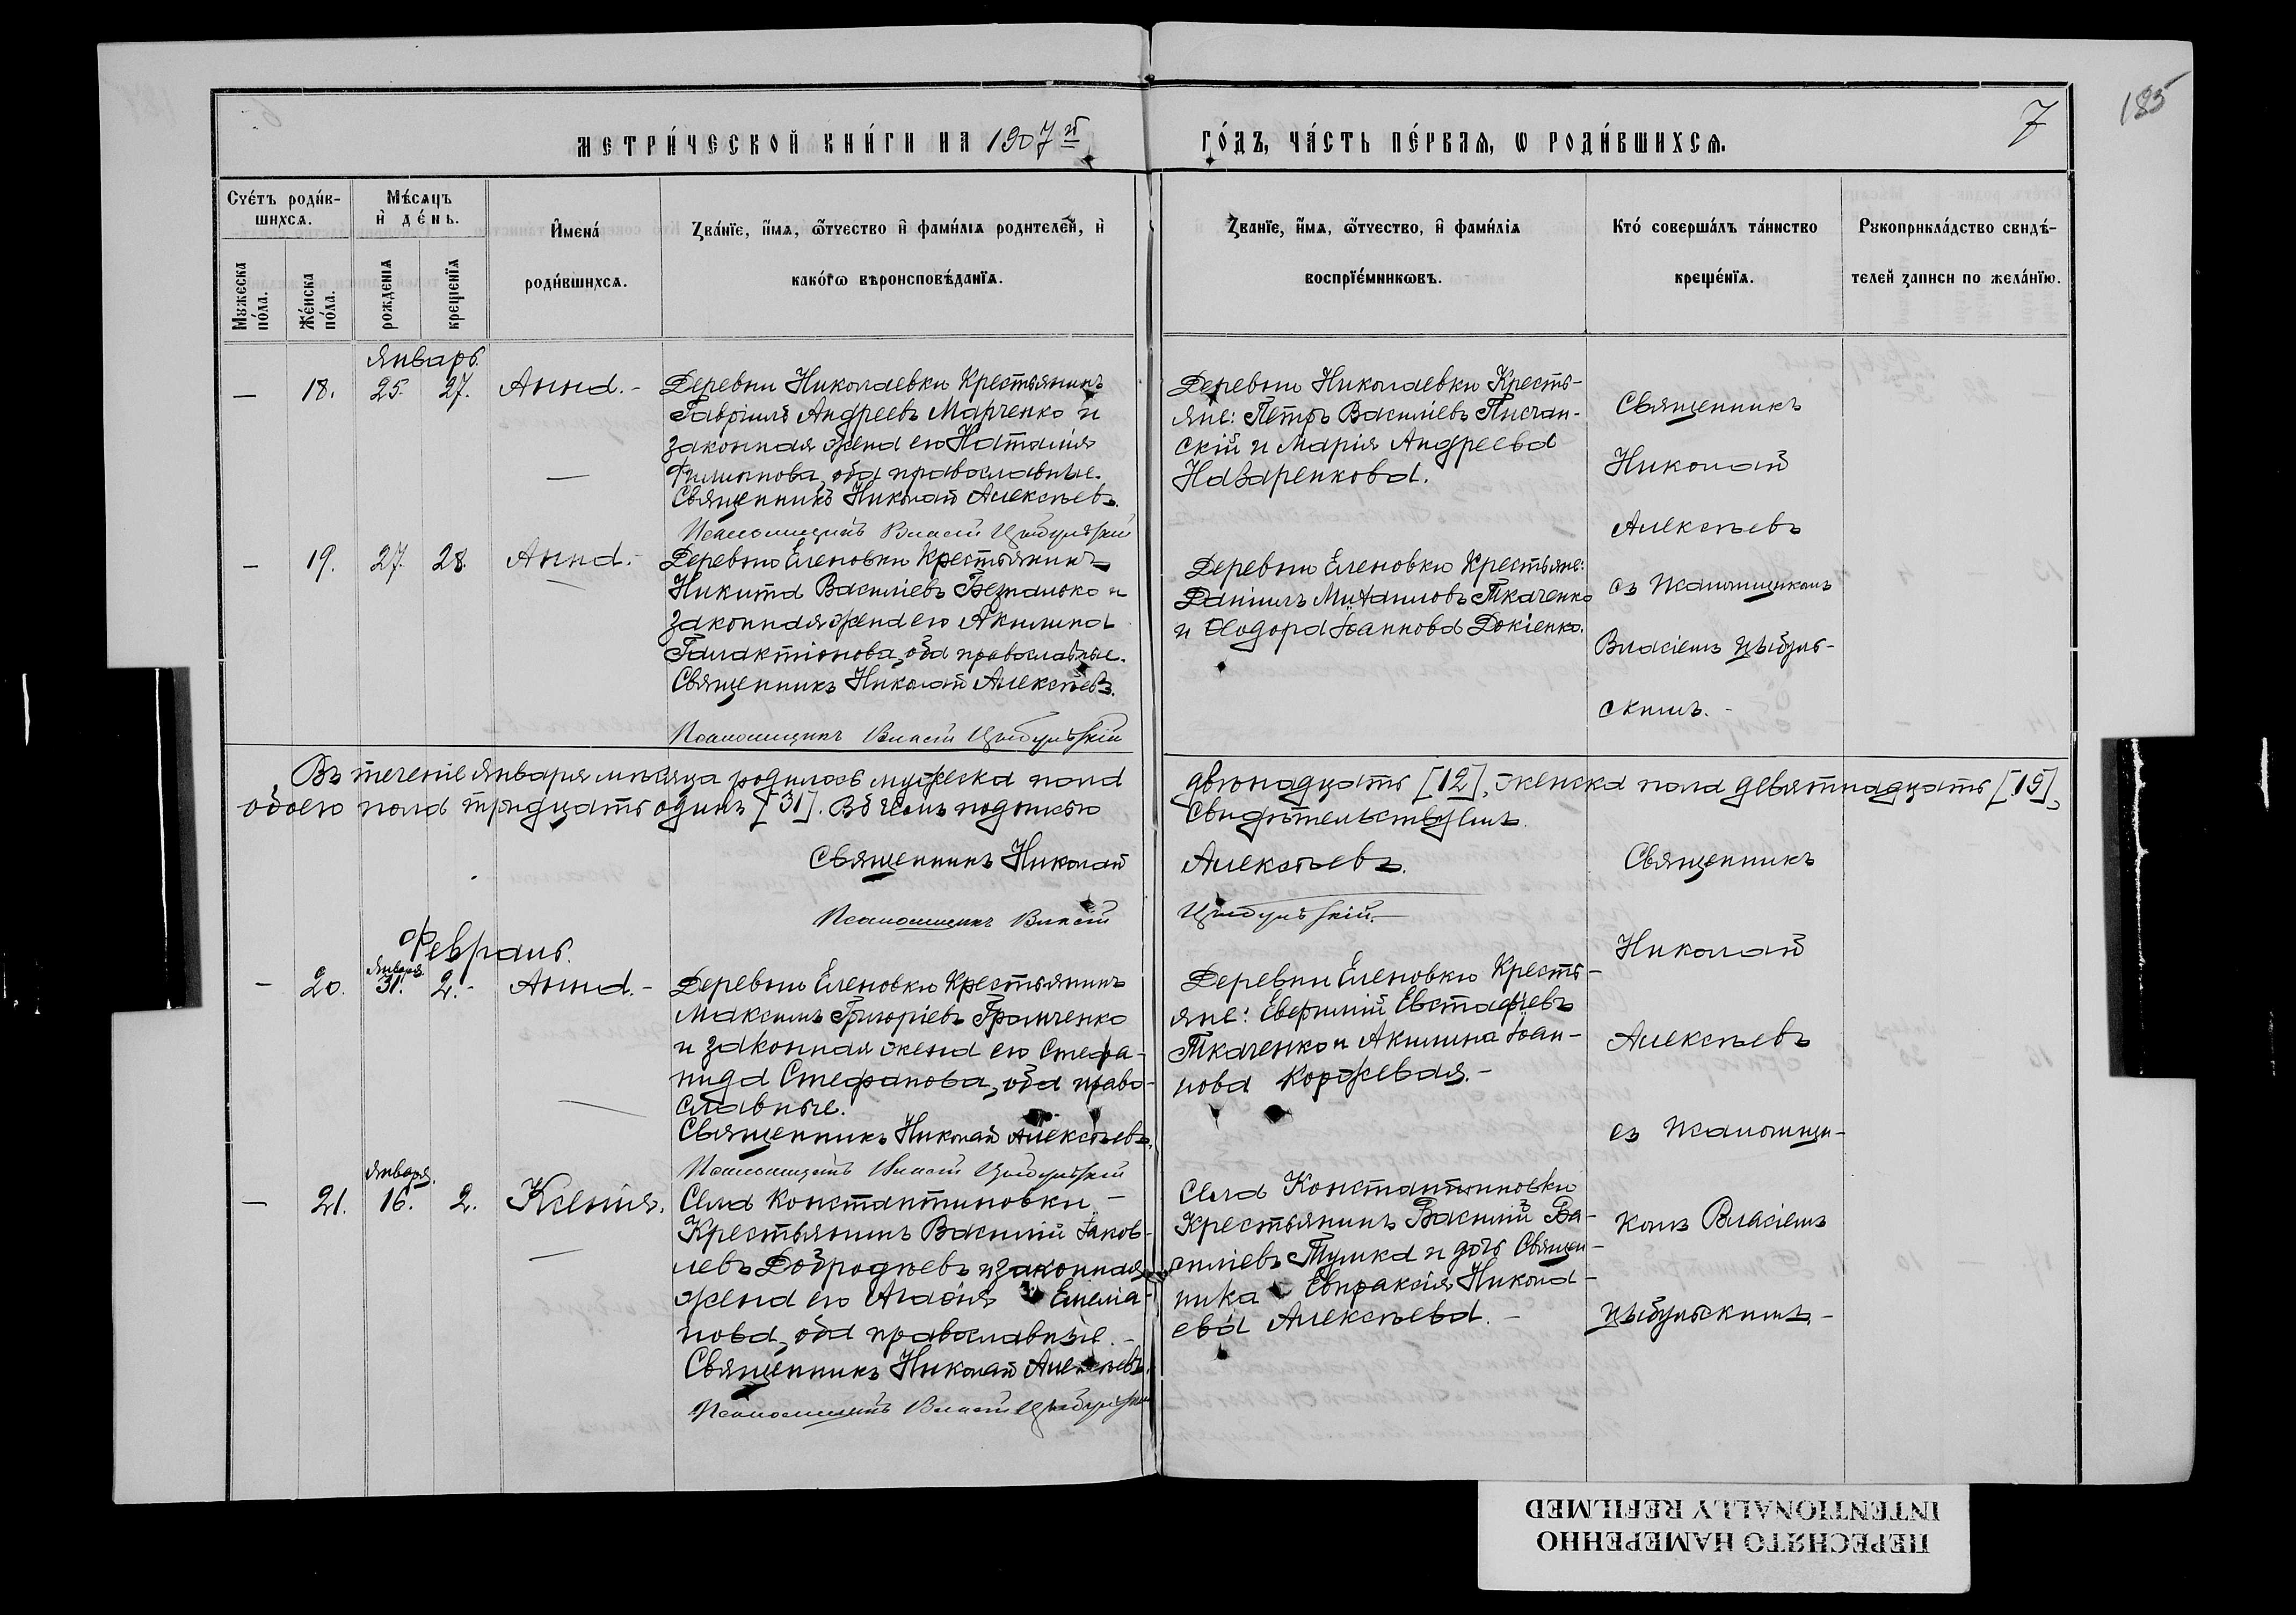 185
7
МЕТРИ́ЧЕСКОЙ КНИ́ГИ НА 1907й
ГО́ДЪ, ЧА́СТЬ ПЕ́РВАЯ, Ѡ РОДИ́ВШИХСЯ.
Сче́тъ роди́в-
шихся.
Мѣ́сяцъ
и де́нь.
Мꙋжеска
по́ла.
Же́нска
по́ла.
рожденїя
крещенїя
Имена́
роди́вшихся.
Зва́нїе, и́мя, ѻ́тчество и фами́лїя родителей, и
како́гѡ вѣроисповѣ́данїя.
Зва́нїе, и́мя, ѻ́тчество, и фами́лїя
воспрїе́мникѡвъ.
Кто́ соверша́лъ та́инство
креще́нїя.
Рꙋкоприкла́дство свидѣ́-
телей записи по жела́нїю.
Январь.
— 18. 25. 27. Анна. -
Деревни Николаевки Крестьянинъ
Гавріилъ Андреевъ Марченко и
законная жена его Наталія
Филиппова, оба православные.
Священникъ Николай Алексѣевъ.
Псаломщикъ Власій Цыбульскій
Деревни Николаевки Кресть-
яне: Петръ Василіевъ Писчан-
скій и Марія Андреева
Назаренкова.
Священникъ
Николай
Алексѣевъ
съ Псаломщикомъ
Власіемъ Цыбуль-
скимъ. -
— 19. 27. 28. Анна. -
Деревни Еленовки Крестьянинъ
Никита Василіевъ Безпалько и
законная жена его Акилина
Галактіонова, оба православные.
Священникъ Николай Алексѣевъ.
Псаломщикъ Власій Цыбульскій
Деревни Еленовки Крестьяне:
Даніилъ Михаиловъ Ткаченко
и Ѳеодора Іоаннова Докіенко.
Въ теченіе Января мѣсяца родилось мужеска пола двѣнадцать [12], женска пола девятнадцать [19],
обоего пола тридцать одинъ [31]. Въ чемъ подписью свидѣтельствуемъ.
Священникъ Николай Алексѣевъ.
Псаломщикъ Власій Цыбульскій. —
Февраль.
— 20. Января 31. 2. - Анна. -
Деревни Еленовки Крестьянинъ
Максимъ Григоріевъ
и законная жена его Стефа-
нида Стефанова, оба право-
славные.
Священникъ Николай Алексѣевъ.
Псаломщикъ Власій Цыбульскій
Деревни Еленовки Кресть-
яне: Евфимій Евстафіевъ
Ткаченко и Акилина Іоан-
нова Коржевая. -
Священникъ
Николай
Алексѣевъ
съ Псаломщи-
комъ Власіемъ
Цыбульскимъ. -
— 21. Января. 16. 2. Ксенія.
Села Константиновки -
Крестьянинъ Василій Іаков-
левъ Добродѣевъ и законная
жена его Агафія Емеліа-
нова, оба православные. -
Священникъ Николай Алексѣевъ.
Псаломщикъ Власій Цыбульскій
Села Константиновки
Крестьянинъ Василій Ва-
силіевъ Тушка и дочь Священ-
ника Евпраксія Никола-
ева Алексѣева. -
ПЕРЕСНЯТО НАМЕРЕННО
INTENTIONALLY REFILMED